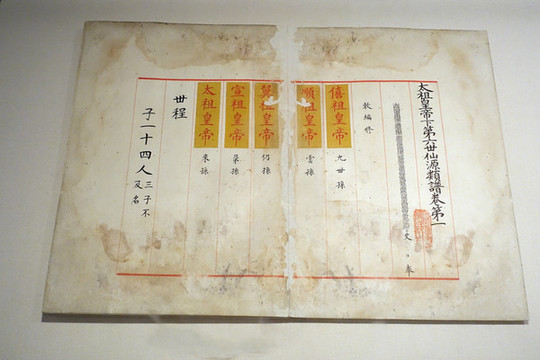 太祖皇帝下第六丗仙源類譜卷第一
奉
敕編修
僖祖皇帝 九丗孫
順祖皇帝 雲孫
翼祖皇帝 仍孫
宣祖皇帝 晜孫
太祖皇帝 來孫
丗程
子一十四人 三子不及名